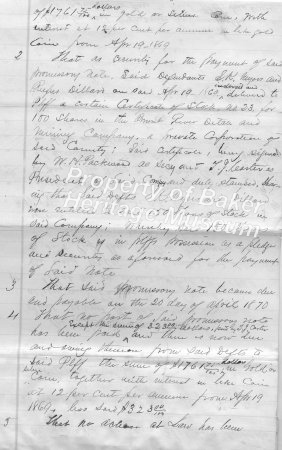 of $1761 7/100 dollars in gold or Silver Coin, with
interest at 12 per cent per annum in like gold
Coin from Apr 19 1869
2 That as Security for the payment of said
promissory note, Said Defendants S.K. Myers and
Rufus Dillard on said Apr 19 endorsed and delivered to
Plff a certain Certificate of Stock No 33, for
150 Shares in the Burnt River Ditch and
Mining Company, a private Corporation of
Said County; Said Certificate, being signed
by W.H. Packwood as Secy and
President of Said Company duly stamped,
ing that said Defts
were entitled to 150 Shares of Stock in
Said Company;
of Stock is in Plffs possession as a pledge
and Security as aforesaid for the payment
of Said Note
3 That said promissory note became due
and payable on the 20 day of April 1870
4 That no part of said promissory note
has been paid except the sum of 323 dollars, and there is now due
and owing thereon from Said Defts to
said Plff the sum of $1761 dollars in gold or
silver Coin, together with interest in like Coin
at 12 per cent per annum from Apr 19
1869, less said $323 00/100
5 That no action at Law has been
Property of Baker
Heritage Museum